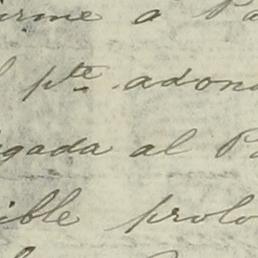 irme a Pa
l pte. adond
gada al Pa
ible prolo